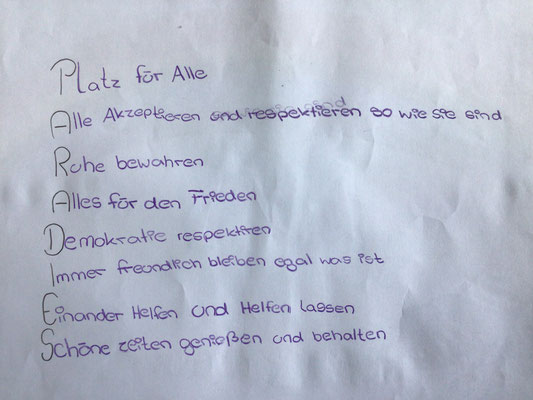 Platz för Alle
Alle Akzeptieren und respektieren so wie sie sind
Ruhe bewahren
Alles för den Frieden
Demokratie respektiren
Immer freundlich bleiben egal was ist
Einander Helfen und Helfen lassen
Schöne zeiten genießen und behalten